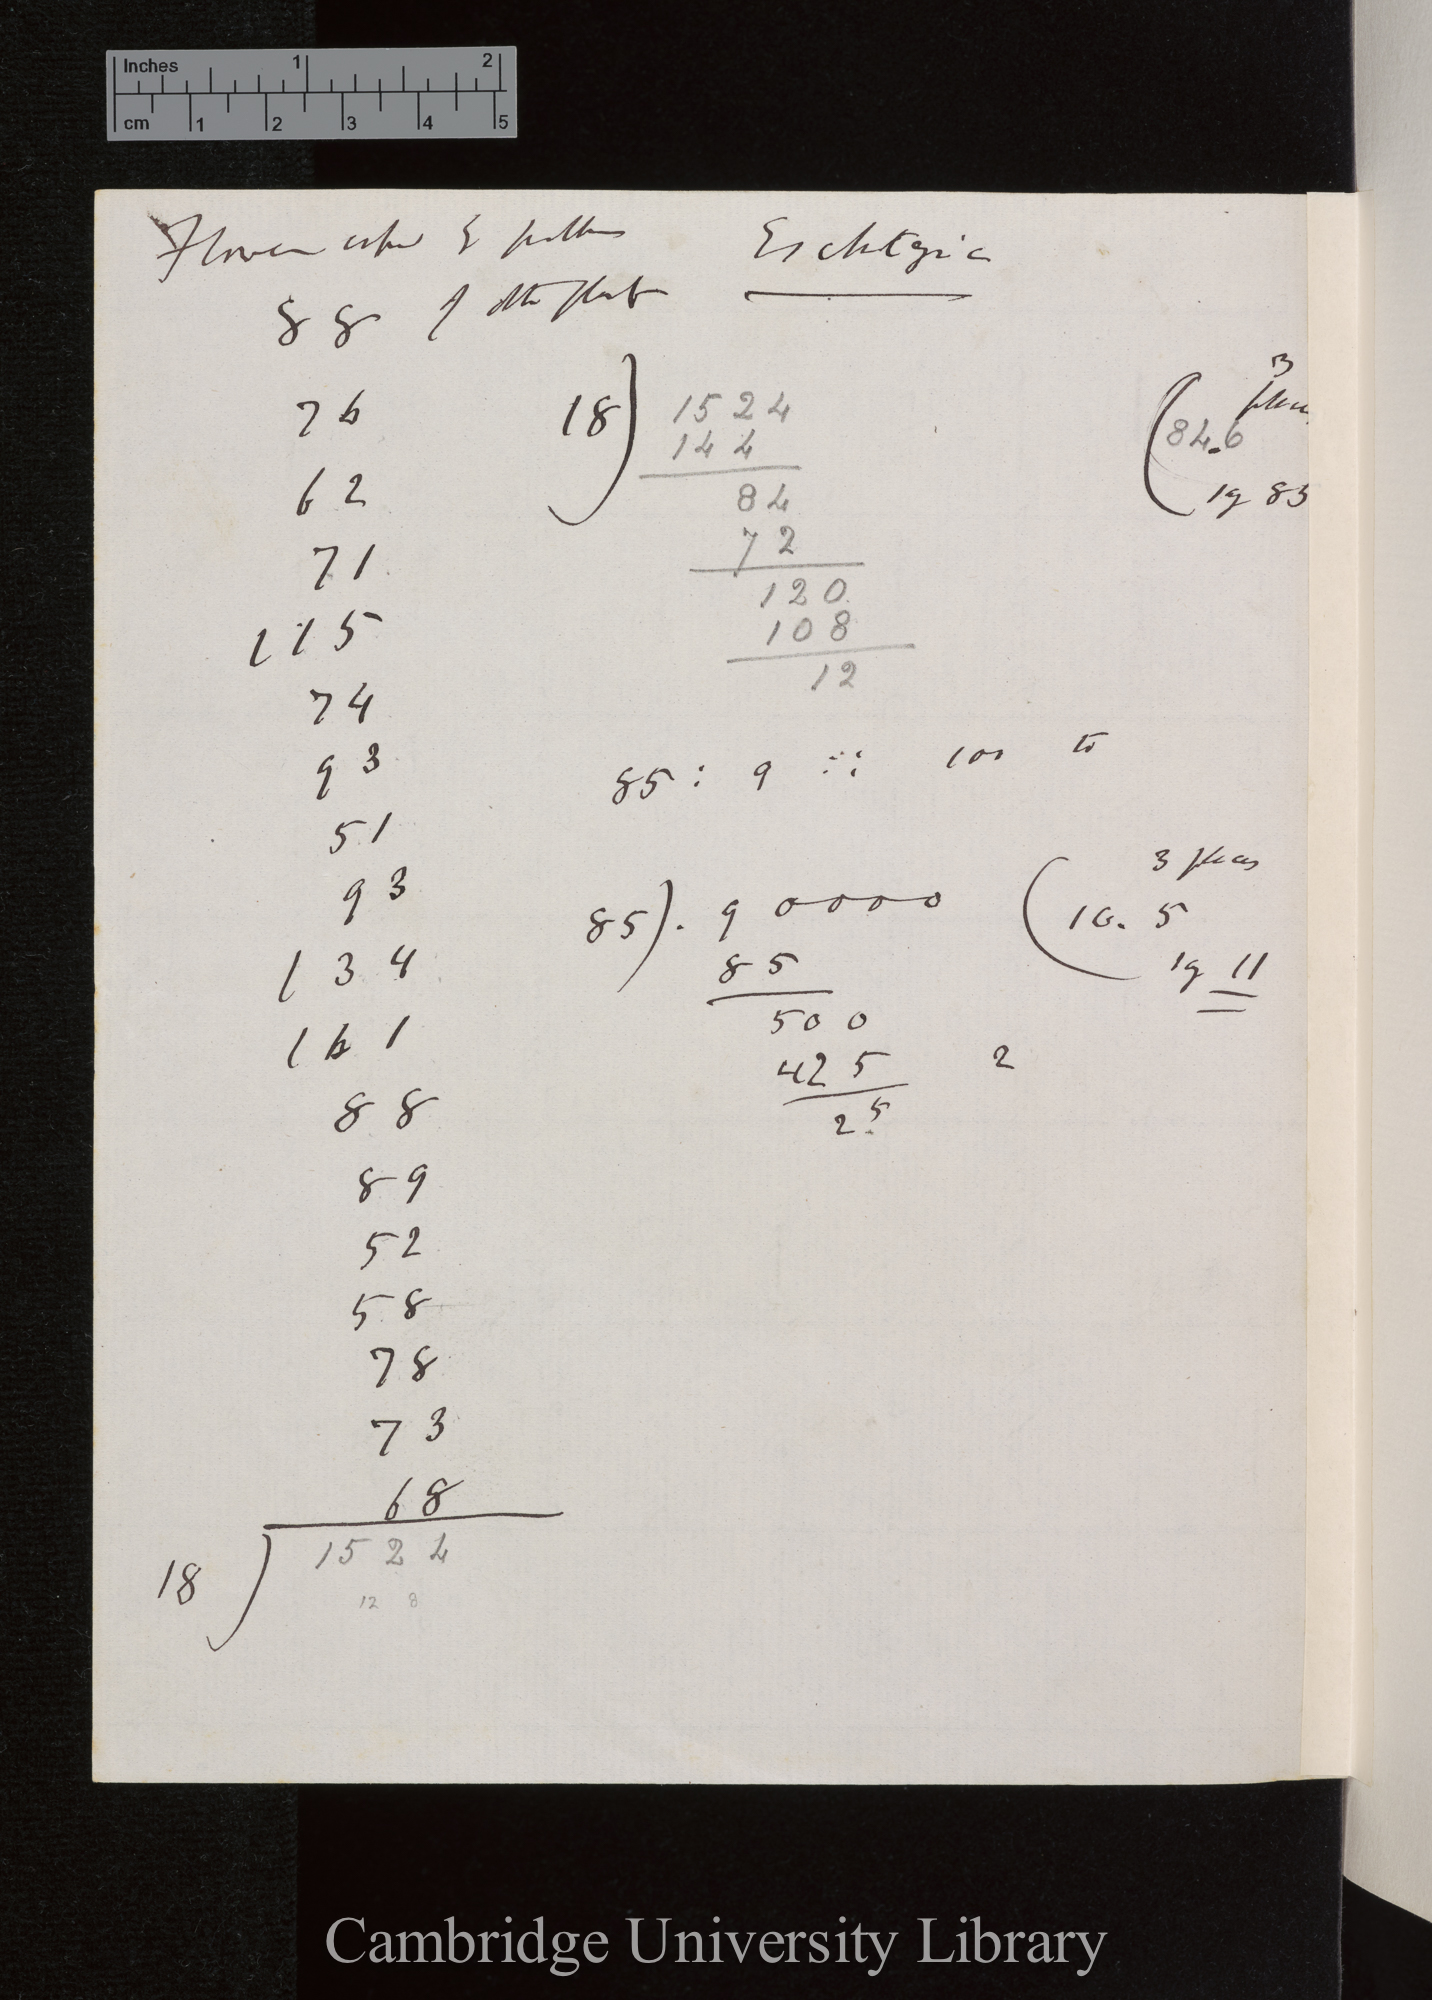 Inches 1 2
cm 1 2 3 4 5
Flower & pollen Eschtzia
of other plant
88
76
62
71
115
74
93
51
93
134
161
88
89
52
58
78
73
68
18) 1524
12 8
18) 1524 (84.6
3
places
144
84
72
120
108
12
83
85 : 9 :: 100 to
3 places
85). 90000 (10.5
85
11
500
425 2
25
Cambridge University Library